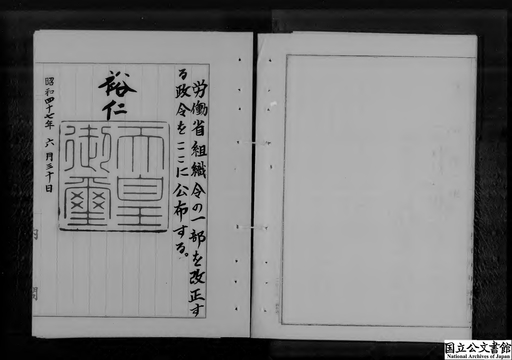 労働省組織令の一部を改正す
る政令をここに公布する。
裕仁
天皇
御璽
昭和四十七年 六月三十日
内閣
国立公文書館
National Archives of Japan